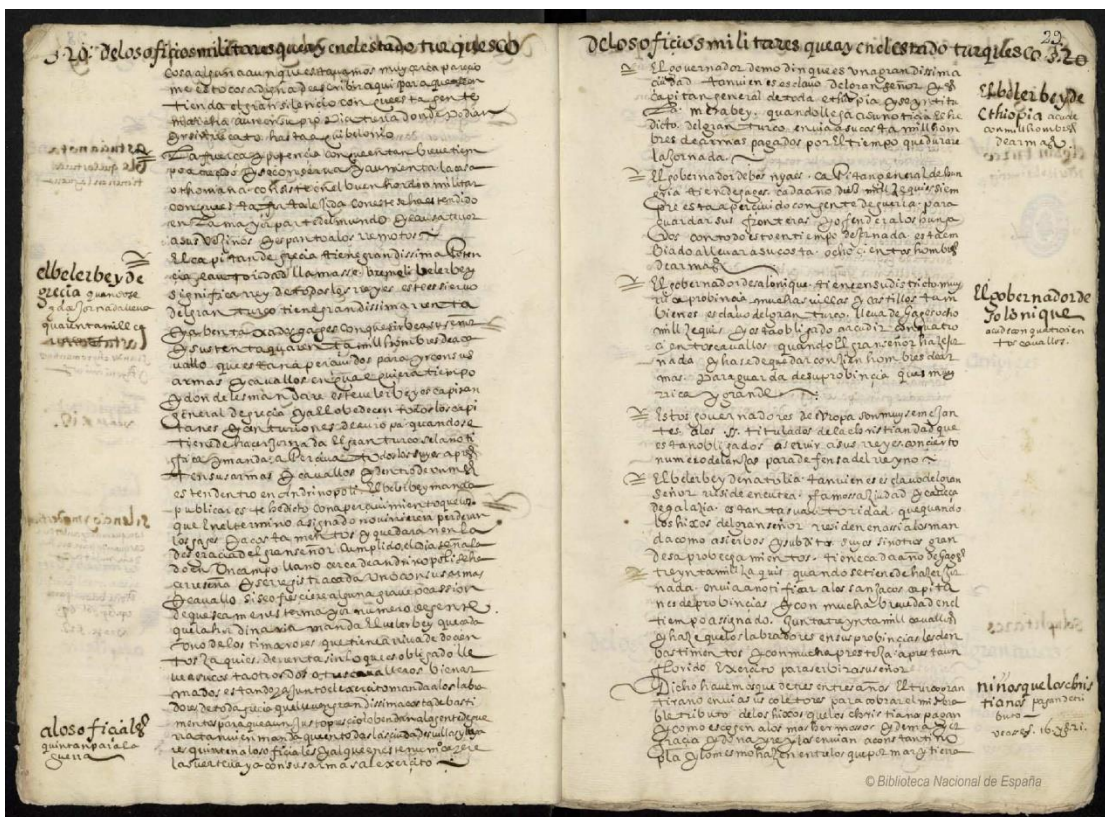 §.20. de los oficios militares que ay en el estado turquesco
cosa alguna aunque estavamos muy cerca parecio
me esto cosa digna de escribir aqui para que se en
tienda el gran silencio con que esta gente
marcha
hasta aqui belonio
La fuerça y potencia con que en tan breve tiem
po a crecido y se conserva y aumenta la casa
othomana consiste en el buen horden militar
con que esta fortalecida con este se ha estendido
en la mayor parte del mundo y causa temor
a sus vezinos y espanto a los remotos
El capitan de grecia tiene grandissima poten
cia y autoridad llamasse belerbey
significa rey de todos los reyes este es siervo
del gran turco tiene grandissima renta
gages con que sirbe a su señor
y sustenta quarenta mill hombres de aca
vallo que estan apercividos para yr con sus
armas y cavallos en qualquiera tiempo
y donde les mandare este velerbey es capitan
general de grecia y a el obedecen todos los capi
tanes y centuriones de europa quando se
tiene de hacer jornada el gran turco se lo noti
fica y manda aperciva todos los suyos
tengan sus armas y cavallos y dentro de un mes
esten dentro en Andrinopoli El belerbey manda
publicar este hedicto con apercivimiento que los
que en el termino asignado no vinieren perderan
los gages y acostamentos y quedaran en la
desgracia del gran señor. Cumplido el dia señala
do en un campo llano cerca de andrinopoli se ha
ce reseña y se registra cada uno con sus armas
y cavallo si se ofreciere alguna grave ocassion
de que sea menester mayor numero de gente
que la hordinaria manda El velerbey que cada
uno de los que tiene arriva de docien
tos zaquies de renta sin lo que es obligado lle
ve a su costa otros dos o tres cavalleros bien ar
mados estando ya junto el exercito manda a los labra
dores de toda grecia que lleven grandissima costa de basti
mentos para que a un justo precio lo bendan a la gente de gue
rra tanvien manda que en todas las ciudades villas y luga
res quinten a los oficiales y al que
la suerte vaya con sus armas al exercito
el belerbey de
grecia quando se
haze Jornada lleva
quarenta mill ca
vallos
a los oficiales
quintan para la
guerra
29
de los oficios militares que ay en el estado turquesco §.20
El governador de modin que es una grandissima
ciudad tanvien es esclavo del gran señor y es
capitan general de toda ethiopia y se yntitu
la merabey. quando llega a su noticia el he
dicto del gran turco, envia a su costa mill hom
bres de armas pagados por el tiempo que durare
la Jornada
El gobernador de bosnya es capitan general de hun
gria tiene de gages cada año diez mill zequis siem
pre esta apercivido con gente de guerra para
guardar sus fronteras y ofender a los hunga
ros con todo esto en tiempo de jornada esta em
biado a llevar a su costa ochocientos hombres
de armas
El gobernador de salonique tiene en su districto muy
rica probincia muchas villas y castillos tam
bien es esclavo del gran turco. lleva de gages ocho
mill zequis y esta obligado acudir con quatro
cientos cavallos quando El gran señor haze jor
nada y ha se de quedar con cien hombres de ar
mas para guarda de su probincia que es muy
rica y grande
Estos governadores de europa son muy semejan
tes a los ss. titulados de la christiandad que
estan obligados a servir a sus reyes con cierto
numero de lanzas para defensa del reyno
El belerbey de natolia tanvien es esclavo del gran
señor reside en cutea famossa ziudad y cabeça
de galazia es tanta su autoridad, que quando
los hixos del gran señor residen en assia los man
da como a siervos y subditos suyos sin otros gran
des aprobechamientos. tiene cada año de gages
treynta mill zaquis quando se tiene de hazer jor
nada. envia a notificar a los sanjacos capita
nes de probincias y con mucha brevedad en el
tiempo asignado. junta treynta mill cavallos
y haze que los labradores en sus probincias les den
bastimentos y con mucha presteza apresta un
florido Exercito para servir a su señor
Dicho havemos que de tres en tres años El turco gran
tirano envia sus coletores para cobrar el misera
ble tributo de los hixos que los christianos pagan
y como escogen a los mas hermosos y de mayor
gracia y donayre y los envian a constantino
pla y lo mesmo hazen en todos los que por mar y tierra
El belerbey de
Ethiopia acude
con mill hombres
de armas
El gobernador de
solonique
acude con quatrocien
tos cavallos.
niños que los chris
tianos pagan de tri
buto
vease §. 16.
© Biblioteca Nacional de España